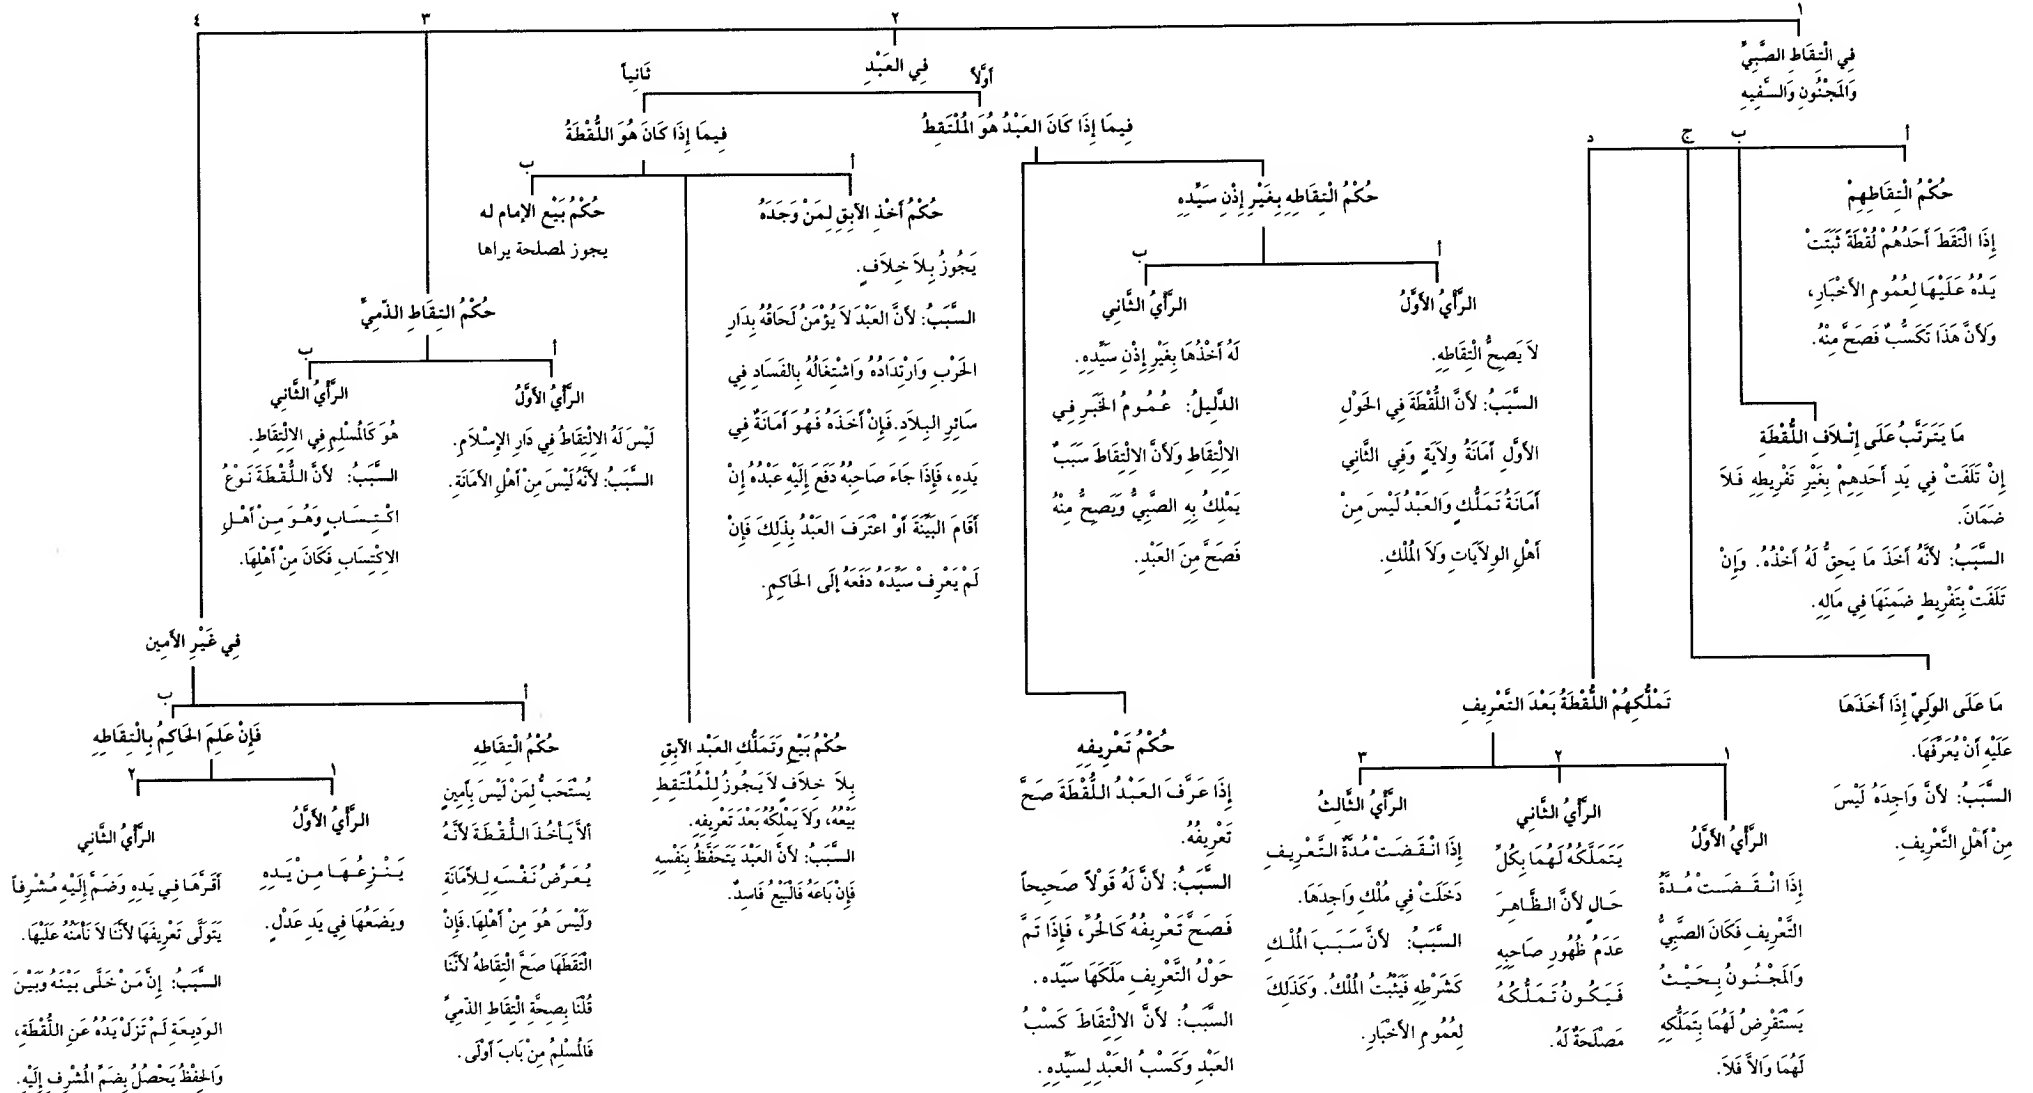 ١
فِي الْتِقَاطِ الصَّبِيِّ
وَالمَجْنُونِ وَالسَّفِيهِ
أ
حُكْمُ الْتِقَاطِهِمْ
إِذَا الْتَقَطَ أَحَدُهُمْ لُقْطَةً ثَبَتَتْ
يَدُهُ عَلَيْهَا لِعُمُومِ الأَخْبَارِ،
وَلأَنَّ هَذَا تَكَسُّبٌ فَصَحَّ مِنْهُ.
ب
مَا يَتَرَتَّبُ عَلَى إِتْلاَفِ اللُّقْطَةِ
إِنْ تَلَفَتْ فِي يَدِ أَحَدِهِمْ بِغَيْرِ تَفْرِيطِهِ فَلاَ
ضَمَانَ.
السَّبَبُ: لأَنَّهُ أَخَذَ مَا يَحِقُّ لَهُ أَخْذُهُ. وَإِنْ
تَلَفَتْ بِتَفْرِيطٍ ضَمِنَهَا فِي مَالِهِ.
ج
مَا عَلَى الوَلِيّ إِذَا أَخَذَهَا
عَلَيْهِ أَنْ يُعَرِّفَهَا.
السَّبَبُ: لأَنَّ وَاجِدَهُ لَيْسَ
مِنْ أَهْلِ التَّعْرِيفِ.
د
تَمْلُّكِهُمْ اللُّقْطَةُ بَعْدَ التَّعْرِيفِ
١
الرَّأْيُ الأَوَّلُ
إِذَا انْقَضَتْ مُدَّةُ
التَّعْرِيفِ فَكَانَ الصَّبِيُّ
وَالمَجْنُونُ بِحَيْثُ
يَسْتَقْرِضُ لَهُمَا بِتَمَلُّكِهِ
لَهُمَا وَالاَّ فَلاَ.
٢
الرَّأْيُ الثَّانِي
يَتَمَلَّكُهُ لَهُمَا بِكُلِّ
حَالٍ لأَنَّ الظَّاهِرَ
عَدَمُ ظُهُورِ صَاحِبِهِ
فَيَكُونُ تَمَلُّكُهُ
مَصْلَحَةٌ لَهُ.
٣
الرَّأْيُ الثَّالِثُ
إِذَا انْقَضَتْ مُدَّةُ التَّعْرِيفِ
دَخَلَتْ فِي مُلْكِ وَاجِدَهَا.
السَّبَبُ: لأَنَّ سَبَبَ المُلْكِ
كَشَرْطِهِ فَيَثْبُتُ المُلْكُ. وَكَذَلِكَ
لِعُمُومِ الأَخْبَارِ.
٢
فِي العَبْدِ
أَوَّلاً
فِيمَا إِذَا كَانَ العَبْدُ هُوَ المُلْتَقِطُ
حُكْمُ الْتِقَاطِهِ بِغَيْرِ إِذْنِ سَيِّدِهِ
أ
الرَّأْيُ الأَوَّلُ
لاَ يَصِحُّ الْتِقَاطِهِ.
السَّبَبُ: لأَنَّ اللُّقْطَةَ فِي الحَوْلِ
الأَوَّلِ أَمَانَةُ وِلاَيَةٍ وَفِي الثَّانِي
أَمَانَةُ تَمَلُّكٍ وَالعَبْدُ لَيْسَ مِنْ
أَهْلِ الوِلاَيَاتِ وَلاَ المُلْكِ.
ب
الرَّأْيُ الثَّانِي
لَهُ أَخْذُهَا بِغَيْرِ إِذْنِ سَيِّدِهِ.
الدَّلِيلُ: عُمُومُ الخَبَرِ فِي
الِالْتِقَاطِ وَلأَنَّ الِالْتِقَاطَ سَبَبٌ
يَمْلِكُ بِهِ الصَّبِيُّ وَيَصِحُّ مِنْهُ
فَصَحَّ مِنَ العَبْدِ.
حُكْمُ تَعْرِيفِهِ
إِذَا عَرَّفَ العَبْدُ اللُّقْطَةَ صَحَّ
تَعْرِيفُهُ.
السَّبَبُ: لأَنَّ لَهُ قَوْلاً صَحِيحاً
فَصَحَّ تَعْرِيفُهُ كَالحُرِّ، فَإِذَا تَمَّ
حَوْلُ التَّعْرِيفِ مَلَكَهَا سَيِّده.
السَّبَبُ: لأَنَّ الِالْتِقَاطَ كَسْبُ
العَبْدِ وَكَسْبُ العَبْدِ لِسَيِّدِهِ.
ثَانِياً
فِيمَا إِذَا كَانَ هُوَ اللُّقْطَةُ
أ
حُكْمُ أَخْذِ الآبِقِ لِمَنْ وَجَدَهُ
يَجُوزُ بِلاَ خِلاَفٍ.
السَّبَبُ: لأَنَّ العَبْدَ لاَ يُؤْمَنُ لَحَاقُهُ بِدَارِ
الحَرْبِ وَارْتِدَادُهُ وَاشْتِغَالُهُ بِالفَسَادِ فِي
سَائِرِ البِلاَدِ. فَإِنْ أَخَذَه فَهُوَ أَمَانَةٌ فِي
يَدِهِ، فَإِذَا جَاءَ صَاحِبُهُ دَفَعَ إِلَيْهِ عَبْدُهُ إِنْ
أَقَامَ البَيِّنَةَ أَوْ اعْتَرَفَ العَبْدُ بِذَلِكَ فَإِنْ
لَمْ يَعْرِفْ سَيِّدَهُ دَفَعَهُ إِلَى الحَاكِمِ.
حُكْمُ بَيْعِ وَتَمَلُّكِ العَبْدِ الآبِقِ
بِلاَ خِلاَفٍ لاَ يَجُوزُ لِلْمُلْتَقِطِ
بَيْعُهُ، وَلاَ يَمْلِكُهُ بَعْدَ تَعْرِيفِهِ.
السَّبَبُ: لأَنَّ العَبْدَ يَتَحَفَّظُ بِنَفْسِهِ
فَإِنْ بَاعَهُ فَالْبَيْعُ فَاسِدٌ.
ب
حُكْمُ بَيْعِ الإمام له
يجوز لمصلحة يراها
٣
حُكْمُ التِقَاطِ الذّمِيِّ
أ
الرَّأْيُ الأَوَّلُ
لَيْسَ لَهُ الِالْتِقَاطُ فِي دَارِ الإِسْلاَمِ.
السَّبَبُ: لأَنَّهُ لَيْسَ مِنْ أَهْلِ الأَمَانَةِ.
ب
الرَّأْيُ الثَّانِي
هُوَ كَالمُسْلِمِ فِي الِالْتِقَاطِ.
السَّبَبُ: لأَنَّ اللُّقْطَةَ نَوْعُ
اكْتِسَابٍ وَهُوَ مِنْ أَهْلِ
الاكْتِسَابِ فَكَانَ مِنْ أَهْلِهَا.
٤
فِي غَيْرِ الأَمِينِ
أ
حُكْمُ الْتِقَاطِهِ
يُسْتَحَبُّ لِمَنْ لَيْسَ بِأَمِينٍ
ألاَّ يَأْخُذَ اللُّقْطَةَ لأَنَّهُ
يُعَرِّضُ نَفْسَهِ لِلأَمَانَةِ
وَلَيْسَ هُوَ مِنْ أَهْلِهَا. فَإِنْ
الْتَقَطَهَا صَحَّ الْتِقَاطهُ لأَنَّنَا
قُلْنَا بِصِحَّةِ التِقَاطِ الذّمِيِّ
فَالمُسْلِمُ مِنْ بَابَ أَوْلَى.
ب
فَإِنْ عَلِمَ الحَاكِمُ بِالْتِقَاطِهِ
١
الرَّأْيُ الأَوَّلُ
يَنْزِعُهَا مِنْ يَدِهِ
ويَضَعُهَا فِي يَدِ عَدْلٍ.
٢
الرَّأْيُ الثَّانِي
أَقَرَّهَا فِي يَدِهِ وَضَمَّ إِلَيْهِ مُشْرِفاً
يَتَوَلَّى تَعْرِيفَهَا لأَنَّنَا لاَ نَأْمَنُهُ عَلَيْهَا.
السَّبَبُ: إِنَّ مَنْ خَلَّى بَيْنَهُ وَبَيْنَ
الوَدِيعَةِ لَمْ تَزَلْ يَدُهُ عَنِ اللُّقْطَةِ،
وَالحِفْظُ يَحْصُلُ بِضَمِّ المُشْرِفِ إِلَيْهِ.